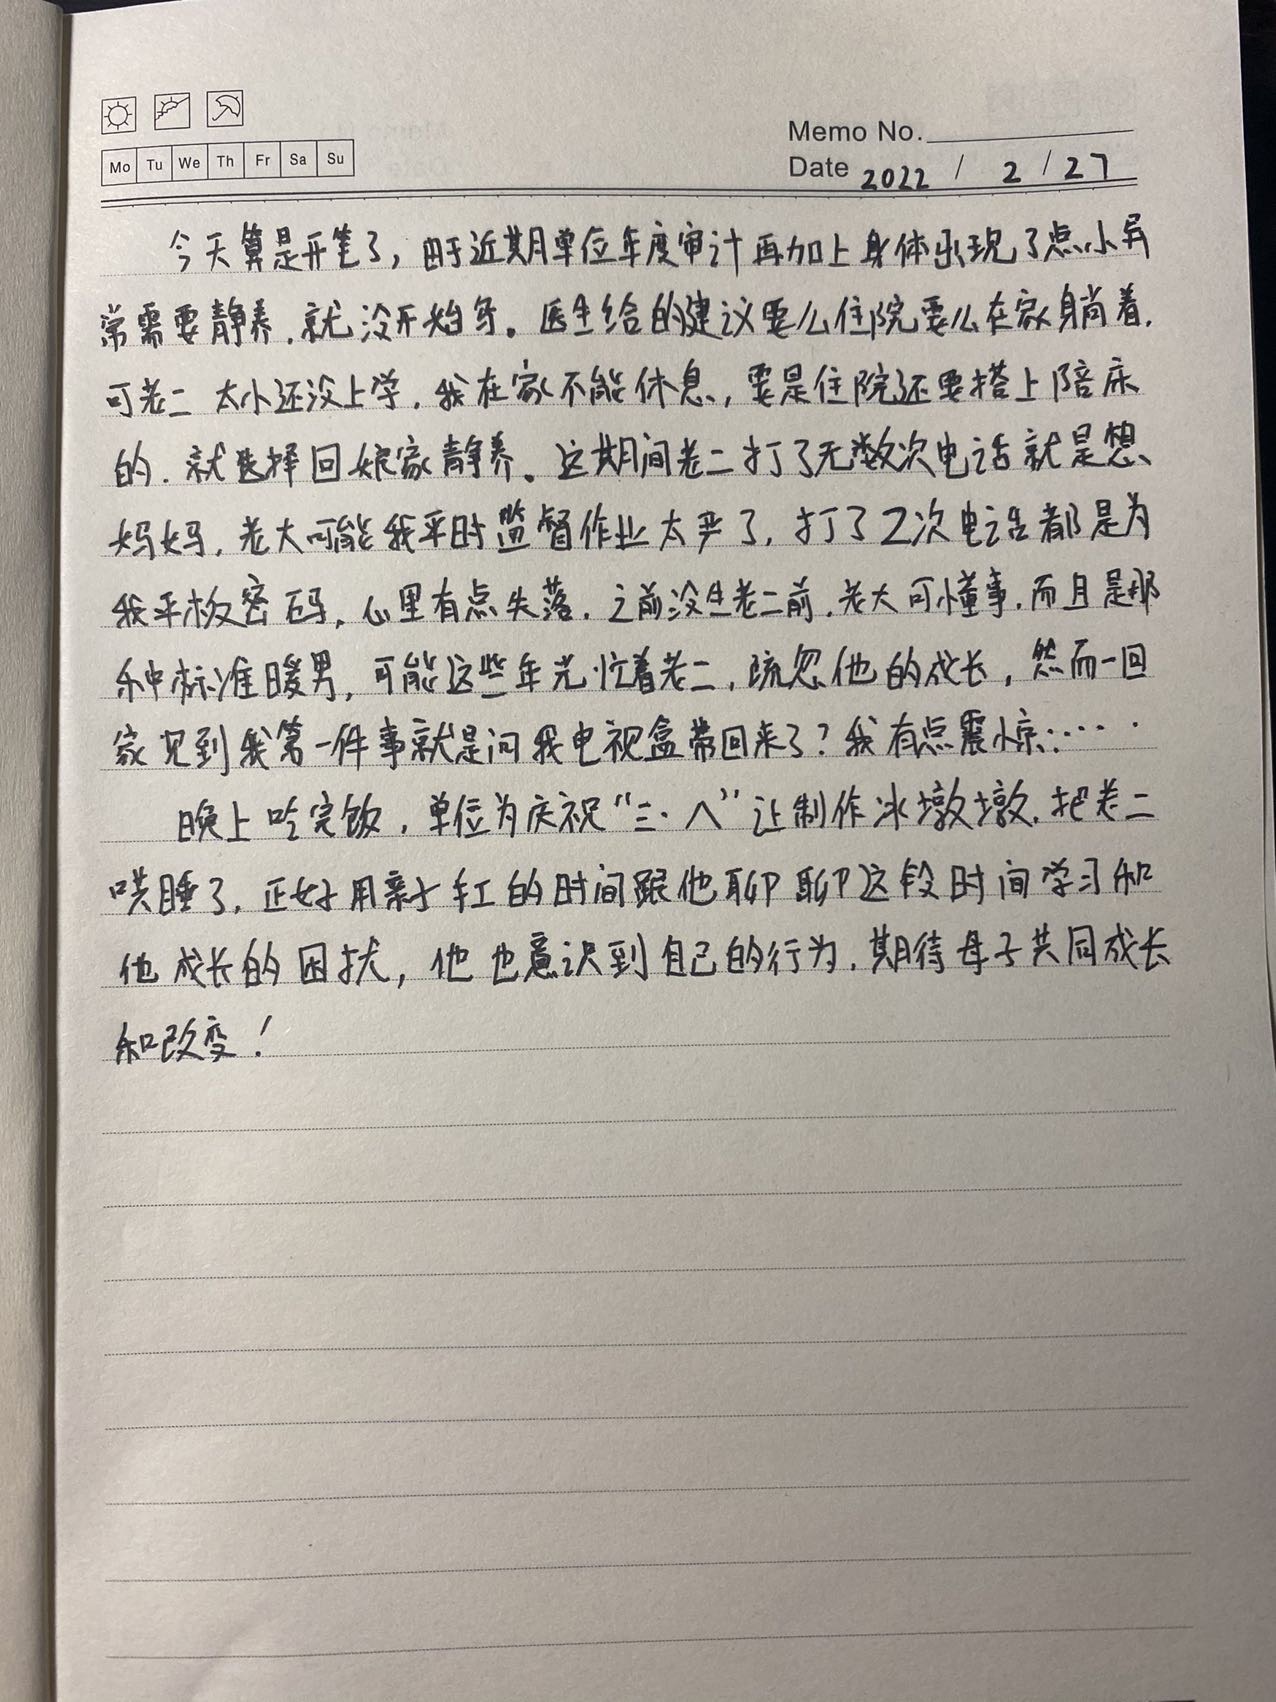 Memo No.
Mo Tu We Th Fr Sa Su
Date 2022 / 2 / 27
今天算是开笔了，由于近期单位年度审计再加上身体出现了点小异
常需要静养，就没开始写。医生给的建议要么住院要么在家躺着，
可老二太小还没上学，我在家不能休息，要是住院还要搭上陪床
的，就选择回娘家静养。这期间老二打了无数次电话就是想
妈妈，老大可能我平时监督作业太严了，打了2次电话都是为
我平板密码，心里有点失落，之前没生老二前，老大可懂事，而且是那
种标准暖男，可能这些年光忙着老二，疏忽他的成长，然而一回
家见到我第一件事就是问我电视盒带回来了？我有点震惊……
晚上吃完饭，单位为庆祝“三·八”让制作冰墩墩，把老二
哄睡了，正好用亲子手工的时间跟他聊聊这段时间学习和
他成长的困扰，他也意识到自己的行为，期待母子共同成长
和改变！